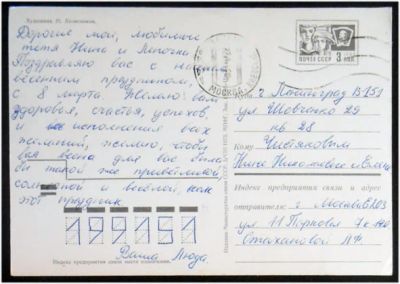 Художник Н. Колесников.
Дорогие мои, любимые
тётя Нина и Леночка
Поздравляю вас с
весенним праздником,
с 8 марта. Желаю вам
здоровья, счастья, успехов,
и исполнения всех
желаний, желаю, чтобы
вся весна для вас была
бы такой же приветливой,
солнечной и весёлой, как
этот праздник
199151
Ваша Люда
Индекс предприятия связи места назначения
МОСКВА
ПОЧТА СССР 3 коп
г Ленинград В-151
ул Шевченко 29
кв 28
Кому Чистяковым
Нине Николаевне и Елене
Индекс предприятия связи и адрес
отправителя: г Москва
ул 11 Парковая
Стахановой